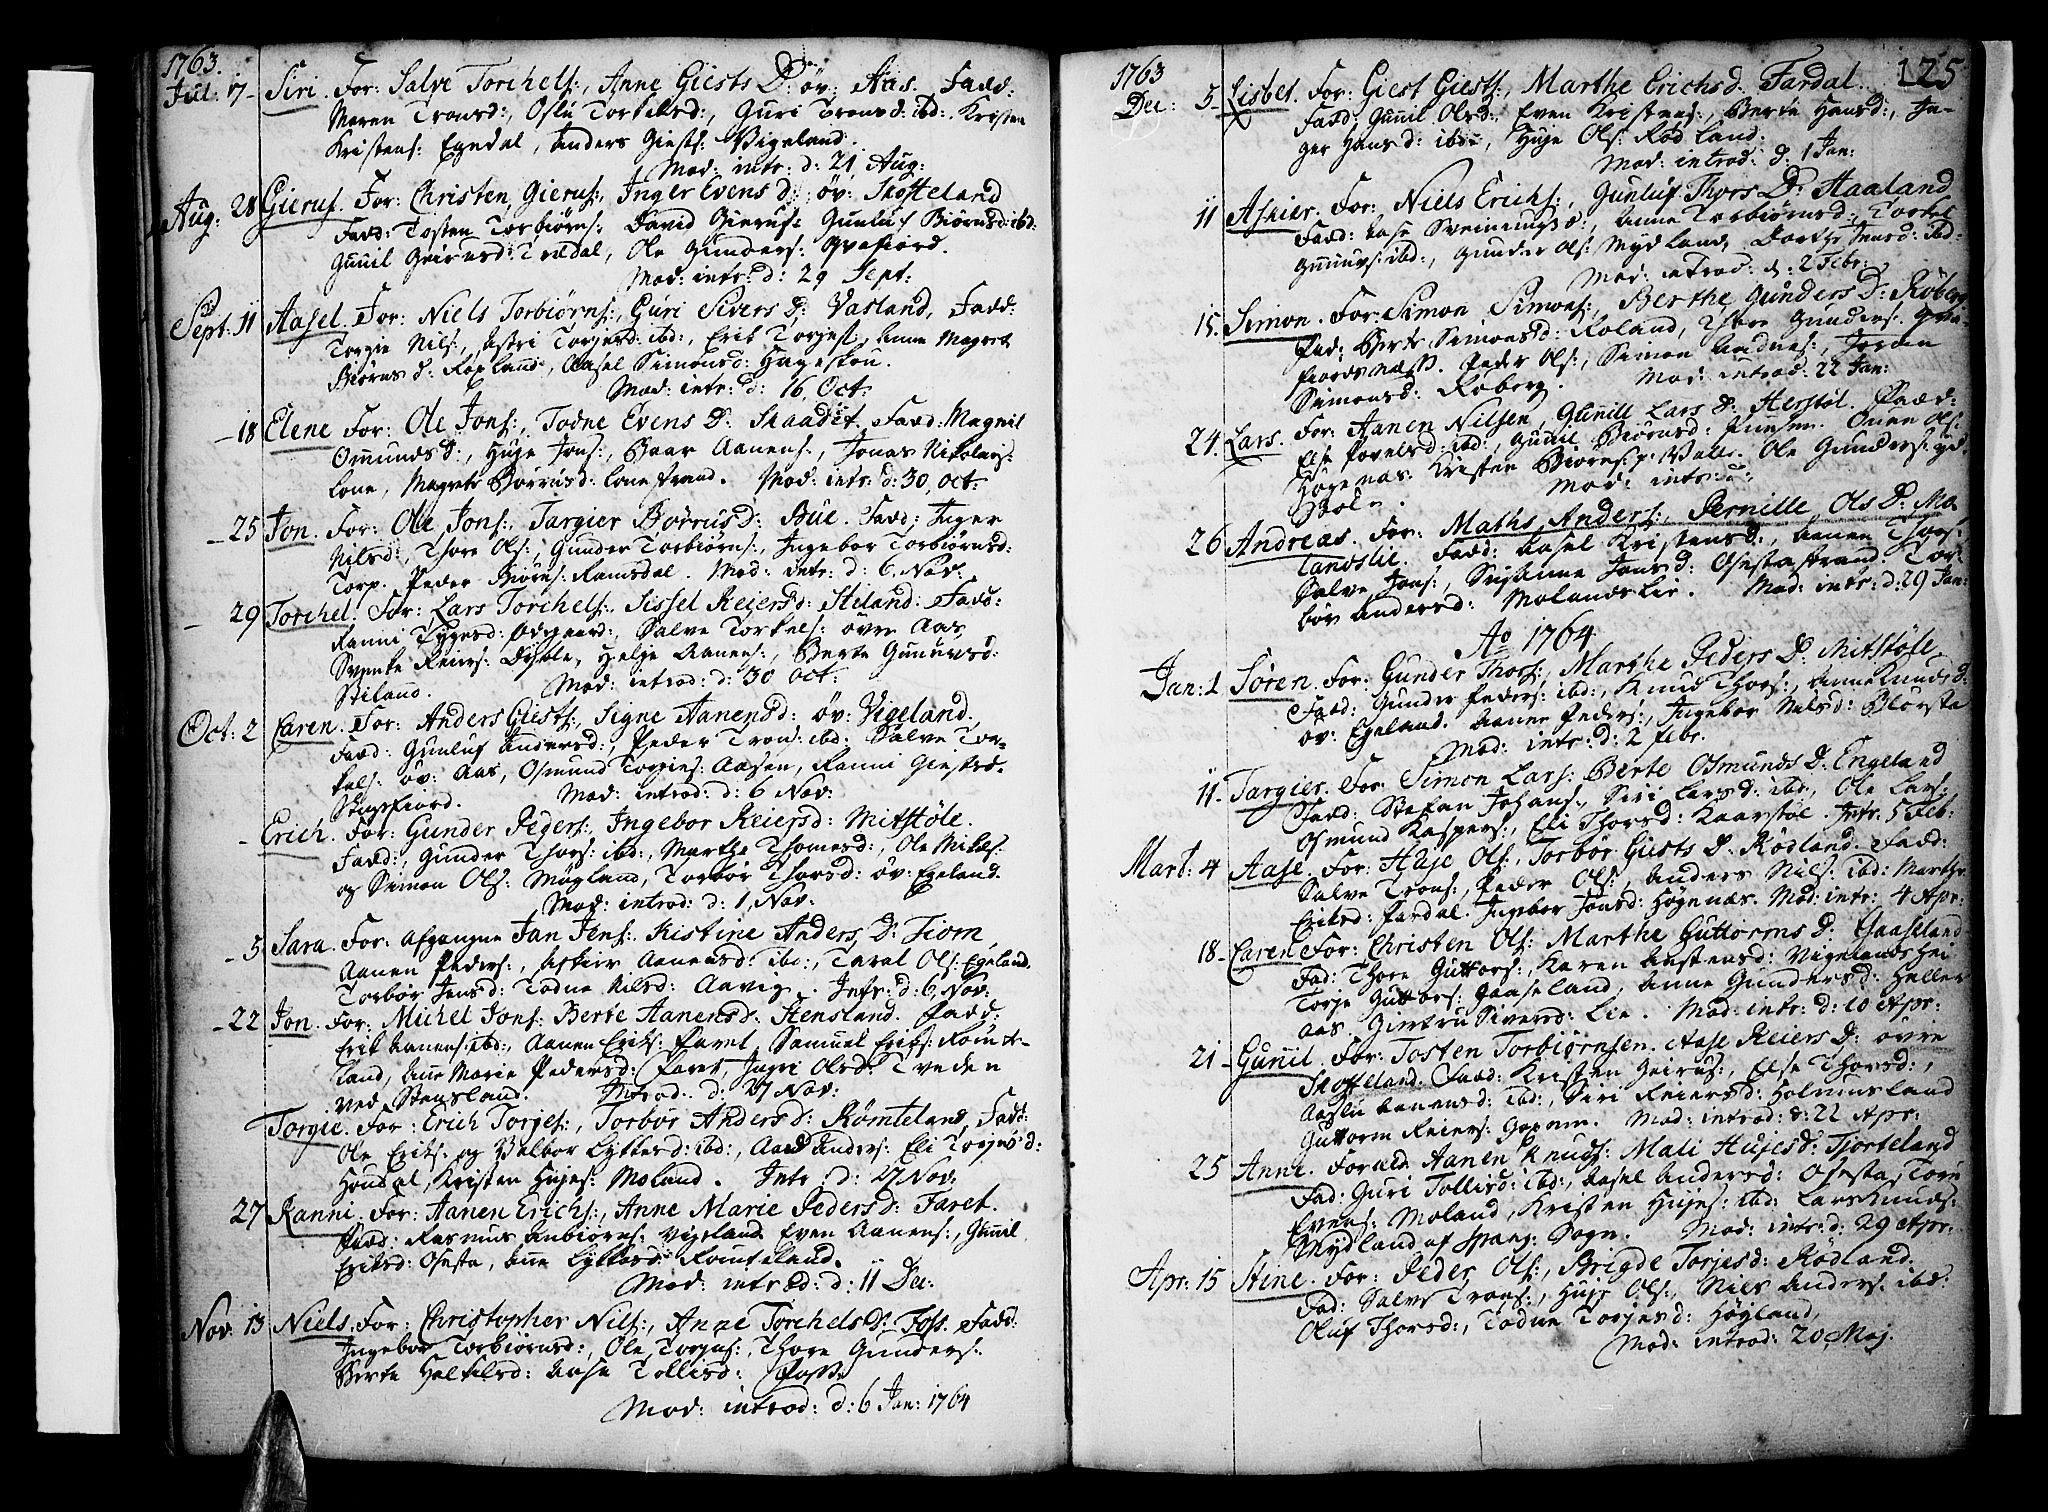 1763.
Jul: 17 - Siri. For: Salve Torchels:, Anne Giests D: öv: Aas. Fadd:
Maren Tronsd:, Osle Torkelsd:, Guri Tronsd: ibd: Kristen
Kristens: Egedal, Anders Giests: Vigeland.
Mod: intr: d: 21 Aug:
Aug: 28 Gieruf. For: Christen Gierufs:, Inger Evens D: öv: Skofteland
Fadd: Tosten Torbiörns:, David Gierufs: Gunluf Biörnsd: ibd:
Gunil Geirusd: Trædal, Ole Gunders: Qvafiord.
Mod: intr: d: 29 Sept:
Sept: 11 Aasel. For: Niels Torbiörns:, Guri Sivers D: Vasland, Fadd:
Torgie Nils:, Astri Torjersd: ibd:, Erik Torjes:, Anne Magret
Biörns D: Roxland, Aasel Simonsd: Hageskou.
Mod: intr: d: 16, Oct:
- 18 Elene For: Ole Jons:, Todne Evens D: Skaadet. Fadd: Magnil
Omunds D:, Huje Jons:, Baar Aanens:, Jonas Nikolais:
Lone, Magrete Börrusd: Lonestrand. Mod: intr: d: 30, Oct:
- 25 Jon. For: Ole Jons:, Targier Börrus D: Bue. Fadd: Inger
Nilsd:, Thore Ols:, Gunder Torbiörns:, Ingebor Torbiörnsd:
Torp. Peder Biörns: Ramsdal. Mod: intr: d: 6, Nov:
- 29 Torchel. For: Lars Torchels:, Sissel Reiersd: Steland: Fadd:
Ranni Tygesd: Ödegaard:, Salve Torkels: övre Aas,
Svenke Reiers: Döble, Helje Aanens:, Berte Gunursd:
Stiland. Mod: introd: d: 30 Oct:
Oct: 2 Caren. For: Anders Giests:, Signe Aanensd: öv: Vigeland.
Fadd: Gunluf Andersd:, Peder Trons: ibd: Salve Tor-
kels: öv: Aas, Osmund Torgies: Aasen, Ranni Giestsd:
Skogsfiord. Mod: introd: d: 6 Nov:
- Erich. For: Gunder Peders:, Ingebor Reiersd: Mitstöle.
Fadd:, Gunder Thors: ibd:, Marthe Thomesd:, Ole Mikels:
og Simon Ols: Mögland, Torbör Thorsd: öv: Egeland.
Mod: introd: d: 1, Nov:
- 5 Sara. For: afgangne Jan Jens:. Kistine Anders D: Tiom,
Aanen Peders:, Askier Aanensd: ibd:, Taral Ols: Egeland.
Torbör Jensd: Todne Nilsd: Aavig. Intr: d: 6, Nov:
- 22 Jon. For: Michel Jons: Berte Aanensd: Stensland. Fadd:
Erik Aanens: ibd:, Aanen Eriks: Faret, Samuel Eriks: Römte-
land, Ane Marie Pedersd: Faret, Ingri Olsd: Tveden
ved Stensland. Introd. d: 27 Nov:
Torgie. For: Erich Torjes:, Torbör Anders D: Römteland, Fadd:
Ole Eriks: og Valbor Lyktesd: ibd:, Anders: Eli Torjusd:
Houdal, Kristen Hujes: Moland. Intr: d: 27 Nov:
27 Ranni. For: Aanen Erichs:, Anne Marie Peders D: Faret.
Fadd: Rasmus Anbiörns: Vigeland, Even Aanens:, Gunil
Eriksd: Ofesta, Ane Lyktesd: Römteland.
Mod: introd: d: 11 Dec:
Nov: 13 Niels. For: Christopher Nils:, Anne Torchels D: Foss. Fadd:
Ingebor Torbiörnsd:, Ole Torjus:, Thore Gunders:
Berte Halkelsd: Aase Tollisd: Foss.
Mod: introd: d: 6 Jan: 1764
1763 125
Dec: 5. Lisbet. For: Giest Giests:, Marthe Erichs D: Fardal.
Fadd: Gunil Olsd:, Even Kristens:, Berte Hansd:, In-
ger Hansd: ibd:, Huje Ols: Rödland.
Mod: introd: d: 1 Jan:
11 Askier. For: Niels Erichs:, Gunluf Thors D: Haaland
Fadd: Aase Sveinungsd:, Anne Torbiörnsd:, Torkel
Gunurs: ibd:, Gunder Ols: Mydland, Dorthe Jensd: ibd:
Mod: introd: d: 2 Febr:
15. Simon. For: Simon Simons:, Berthe Gunders D: Röberg
Fad: Berte Simonsd: Roland, Thore Gunders: Qva-
fiordsnæss. Peder Ols:, Simon Andres:, Joren
Simonsd: Röberg. Mod: introd: 22 Jan:
24. Lars. For: Aanen Nilsen, Gunill Lars D: Herstöl. Fadd:
Else Povelsd: ibd:, Gunil Biörnsd: Ouen Ols:
Högenæs. Kristen Biörns: p: Valle. Ole Gunders: ved
Skole. Mod: intr: d:
26 Andreas. For: Maths Anders:, Pernille Ols D: Mo-
landslie. Fadd: Aasel Kristensd:, Aanen Thors:
Salve Jons:, Susanne Jonsd: Ofestastrand. Tor-
bör Andersd: Molandslie. Mod: intr: d: 29 Jan:
Ao 1764
Jan: 1 Sören. For: Gunder Thors:, Marthe Peders D: Mitstöle.
Fadd: Gunder Peders: ibd:, Knud Thors:, Anne Knudsd:
öv: Egeland. Aanen Peders:, Ingebor Nilsd: Blörsta
Mod: intr: d: 2 Febr.
11 - Targier. For: Simon Lars: Berte Osmunds D: Engeland
Fadd: Stefan Johans:, Siri Larsd: ibd:, Ole Lars:,
Osmund Kaspers:, Eli Thorsd: Kaarstöl. Intr: 5 Feb:
Mart: 4 Aase. For: Huje Ols:, Torbor Giests D: Rödland. Fadd:
Salve Trons:, Peder Ols:, Anders Nils: ibd: Marthe
Eriksd: Fardal. Ingebor Jonsd: Högenæs. Mod: intr: 4 Apr:
18 - Caren For: Christen Ols: Marthe Guttorms D: Gaaseland
Fad: Thore Guttors:, Karen Astensd: Vigelandshei
Torje Guttors: Gaaseland, Anne Gundersd: Heller
aas. Giertru Siversd: Lie. Mod: intr: d: 10 Apr:
21 - Gunil. For: Tosten Torbiörnsen. Aase Reiers D: övre
Skofteland: Fadd: Kristen Geirus:, Else Thorsd:,
Aaslu Aanensd: ibd:, Siri Reiersd: Holmusland
Guttorm Reiers: Mod: introd: d: 22 Apr:
25 Anne. Forald. Aanen Knuds: Mali Hujesd: Tjorteland
Fad: Guri Tollisd: ibd:, Aasel Andersd: Ofesta, Tore
Evens: Moland, Kristen Hujes: ibd: Lars Knuds:
Mydland af Spang: Sogn. Mod: intr: d: 29 Apr:
Apr: 15 Stine. For: Peder Ols:, Brigde Torjesd: Rödland.
Fad: Salve Trons:, Huje Ols:, Niels Anders: ibd:
Oluf Thorsd:, Todne Torjesd: Högland,
Mod: introd: 20, Maj.